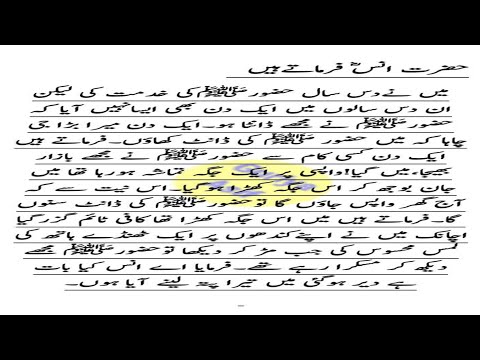 حضرت انسؓ فرماتے ہیں
میں نے دس سال حضورﷺ کی خدمت کی لیکن
ان دس سالوں میں ایک دن بھی ایسا نہیں آیا کہ
حضورﷺ نے مجھے ڈانٹا ہو۔ ایک دن میرا بڑا جی
چاہا کہ میں حضورﷺ کی ڈانٹ کھاؤں۔ فرماتے ہیں
ایک دن کسی کام سے حضورﷺ نے مجھے بازار
بھیجا، میں گیا! واپسی پر ایک جگہ تماشہ ہو رہا تھا میں
جان بوجھ کر اس جگہ کھڑا ہو گیا۔ اس نیت سے کہ
آج گھر واپس جاؤں گا تو حضورﷺ کی ڈانٹ سنوں
گا۔ فرماتے ہیں میں اس جگہ کھڑا تھا کافی ٹائم گزر گیا
اچانک میں نے اپنے کندھوں پر ایک ٹھنڈے ہاتھ کی
لمس محسوس کی جب مڑ کر دیکھا تو حضورﷺ مجھے
دیکھ کر مسکرا رہے تھے۔ فرمایا اے انس کیا بات
ہے دیر ہو گئی میں تیرا پتہ لینے آیا ہوں۔